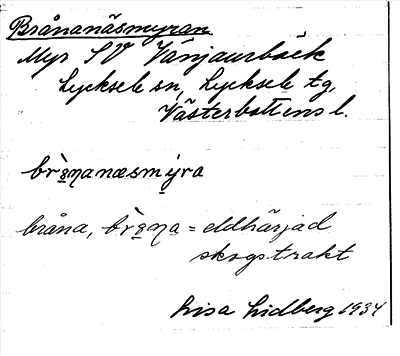 Brånanäsmyran
Myr SV Vänjaurbäck
Lycksele sn, Lycksele tg,
Västerbottens l.
brånanæsmýra
bråna, = eldhärjad
skogstrakt
Lisa Lidberg 1934